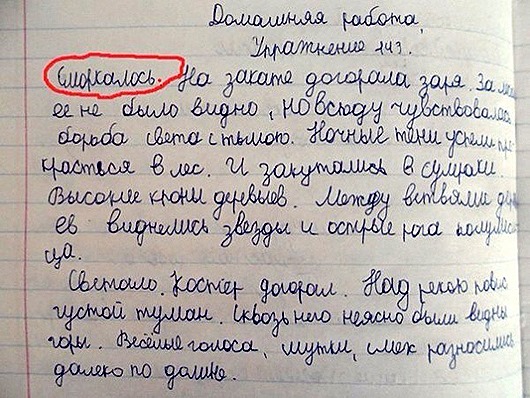 Домашняя работа
Упражнение 143.
Сморкалось. На закате догорала заря. За
ее не было видно, но всюду чувствовалась
борьба света с тьмою. Ночные тени успели про
красться в лес. И закутались в сумраки.
Высокие крони деревьев. Между ветвями дер
ев виднелись звезды и острые рога полумеся
ца.
Светало. Костёр догорал. Над рекою повис
густой туман. Сквозь него неясно были видны
горы. Весёлые голоса, шутки, смех разносились
далеко по долине.